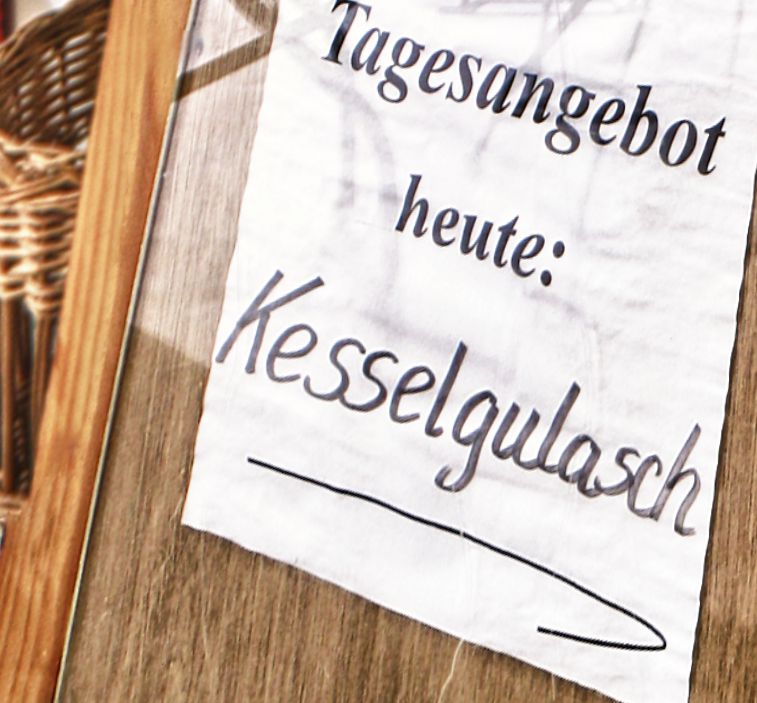 Tagesangebot
heute:
Kesselgulasch